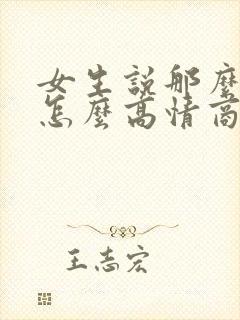 女生說那麼
怎麼高情商
王志宏